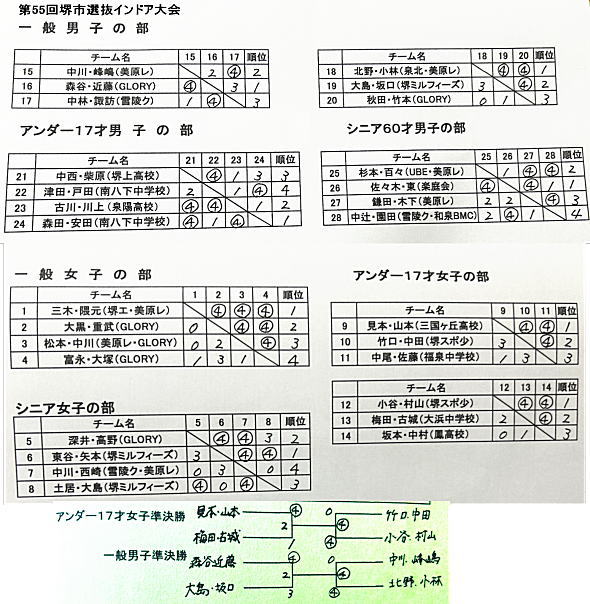 第55回堺市選抜インドア大会
一 般 男 子 の 部
チーム名 15 16 17 順位
15 中川・峰嶋(美原レ) 2 ④ 2
16 森谷・近藤(GLORY) ④ 3 1
17 中林・諏訪(雪陵ク) 1 ④ 3
チーム名 18 19 20 順位
18 北野・小林(泉北・美原レ) ④ ④ 1
19 大島・坂口(堺ミルフィーズ) 3 ④ 2
20 秋田・竹本(GLORY) 0 1 3
アンダー17才 男 子 の 部
チーム名 21 22 23 24 順位
21 中西・柴原(堺上高校) ④ 1 3 3
22 津田・戸田(南八下中学校) 2 1 ④ 4
23 古川・川上(泉陽高校) ④ ④ 1 2
24 森田・安田(南八下中学校) ④ 1 ④ 1
シニア60才男子の部
チーム名 25 26 27 28 順位
25 杉本・百々(UBE・美原レ) 1 ④ ④ 2
26 佐々木・東(楽庭会) ④ ④ 1 1
27 鎌田・木下(美原レ) 2 2 ④ 3
28 中辻・園田(雪陵ク・和泉BMC) 2 ④ 1 4
一 般 女 子 の 部
チーム名 1 2 3 4 順位
1 三木・隈元(堺エ・美原レ) ④ ④ ④ 1
2 大黒・重武(GLORY) 0 ④ ④ 2
3 松本・中川(美原レ・GLORY) 0 2 ④ 3
4 富永・大塚(GLORY) 1 3 1 4
アンダー17才女子の部
チーム名 9 10 11 順位
9 見本・山本(三国ヶ丘高校) ④ ④ 1
10 竹口・中田(堺スポ少) 3 ④ 2
11 中尾・佐藤(福泉中学校) 1 3 3
チーム名 12 13 14 順位
12 小谷・村山(堺スポ少) ④ ④ 1
13 梅田・古城(大浜中学校) 2 ④ 2
14 坂本・中村(鳳高校) 0 1 3
シニア女子の部
チーム名 5 6 7 8 順位
5 深井・高野(GLORY) ④ ④ 3 2
6 東谷・矢本(堺ミルフィーズ) 3 ④ ④ 1
7 中川・西崎(雪陵ク・美原レ) 0 3 0 4
8 土居・大島(堺ミルフィーズ) ④ 0 ④ 3
アンダー17才女子準決勝
見本・山本 ④ 0 竹口・中田
2 ④
梅田・古城 1 ④ 小谷・村山
一般男子準決勝
森谷近藤 ④ 0 中川・峰嶋
2 ④
大島・坂口 3 ④ 北野・小林